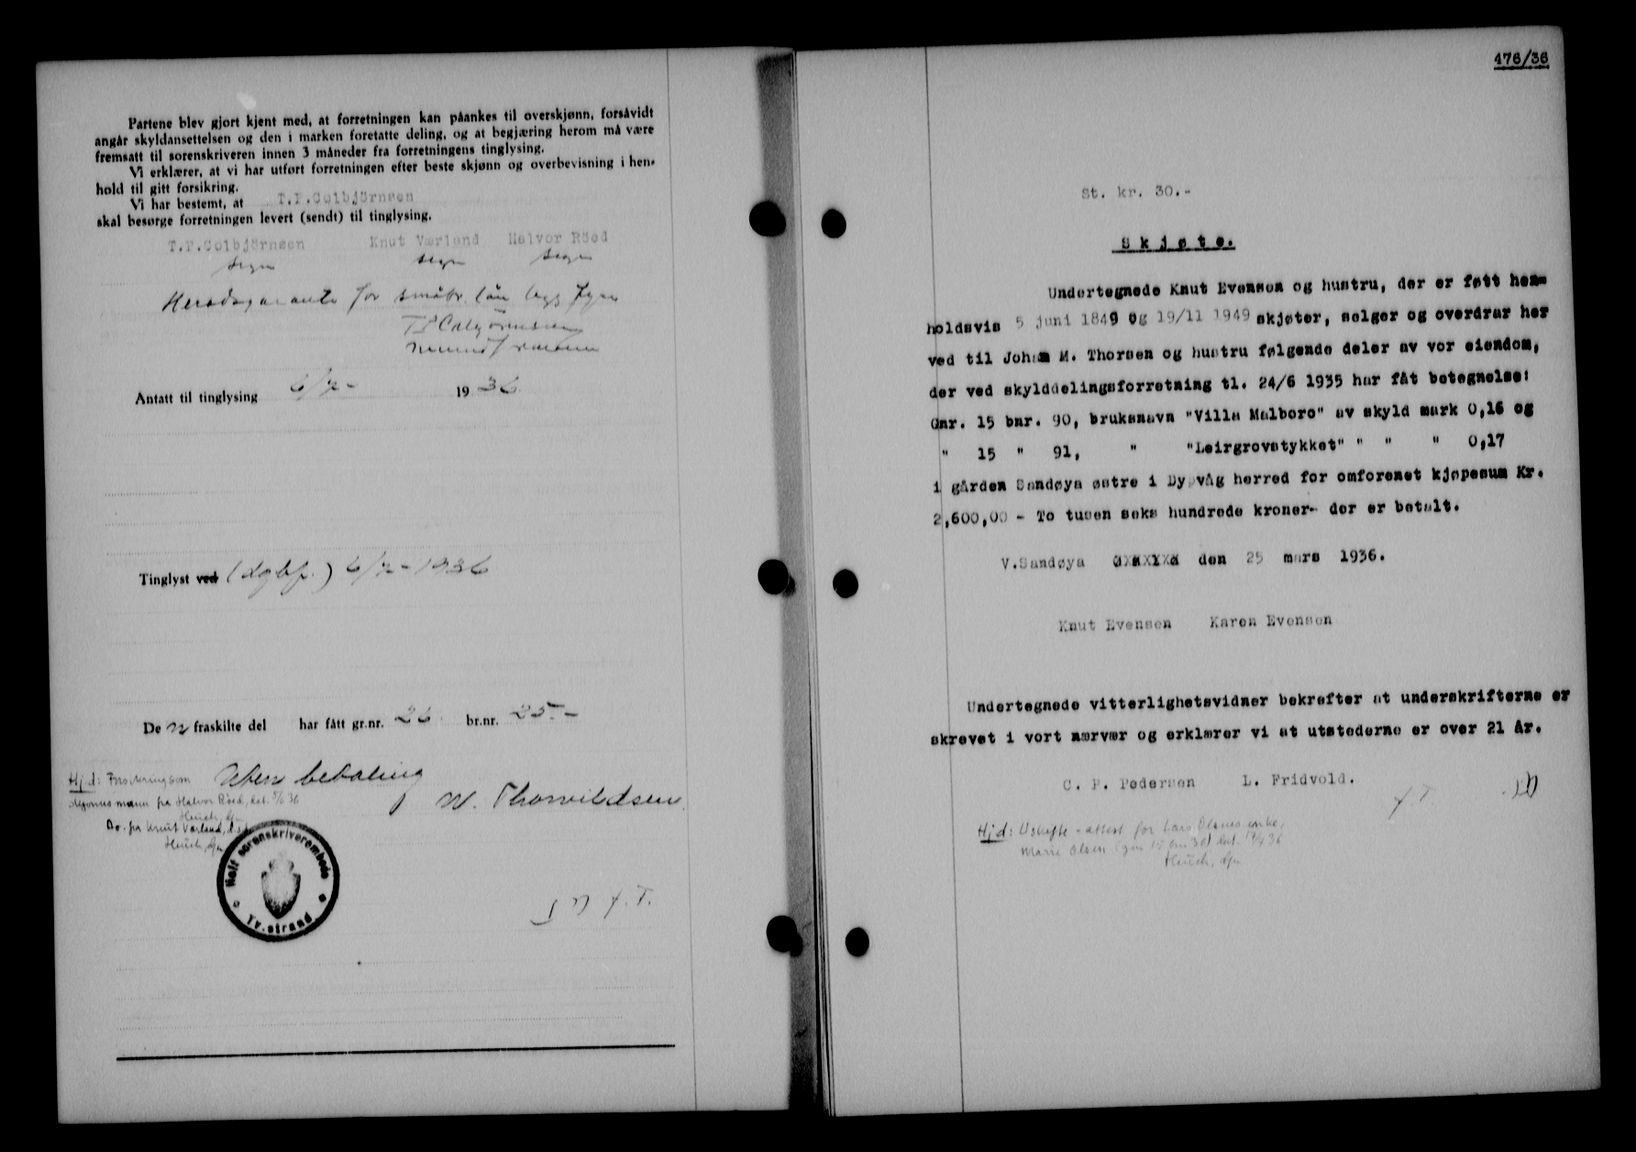 Partene blev gjort kjent med, at forretningen kan påankes til overskjønn, forsåvidt
angår skyldansettelsen og den i marken foretatte deling, og at begjæring herom må være
fremsatt til sorenskriveren innen 3 måneder fra forretningens tinglysing.
Vi erklærer, at vi har utført forretningen efter beste skjønn og overbevisning i hen-
hold til gitt forsikring.
Vi har bestemt, at T.P.Colbjörnsen
skal besørge forretningen levert (sendt) til tinglysing.
T.P.Colbjörnsen Knut Værland Halvor Röed
sign sign sign
for småbr. lån
Antatt til tinglysing 6/7- 1936
Tinglyst ved (dgbf.) 6/7-1936
De n fraskilte del har fått gr.nr. 26 br.nr. 25.-
Hjd: Forsikring som Uten betaling
skjønnsmann fra Halvor Röed, dat. 5/6 36
W. Thorvildsen
Do. fra Knut Værland,
Holt sorenskriverembede
Tv.strand
476/36
St. kr. 30.-
Skjøte.
Undertegnede Knut Evensen og hustru, der er født hen-
holdsvis 5 juni 1849 og 19/11 1949 skjøter, selger og overdrar her
ved til Johan M. Thorsen og hustru følgende deler av vor eiendom,
der ved skylddelingsforretning tl. 24/6 1935 har fåt betegnelse:
Gnr. 15 bnr. 90, bruksnavn "Villa Malboro" av skyld mark 0,16 og
" 15 " 91, " "Leirgrovstykket" " " " 0,17
i gården Sandøya østre i Dypvåg herred for omforenet kjøpesum Kr.
2,600,00 - To tusen seks hundrede kroner- der er betalt.
V.Sandøya den 25 mars 1936.
Knut Evensen Karen Evensen
Undertegnede vitterlighetsvidner bekrefter at underskrifterne er
skrevet i vort nærvær og erklærer vi at utstederne er over 21 år.
C. P. Pedersen L. Fridvold.
Hjd: Uskifte-attest for Lars Olsens enke,
Marie Olsen